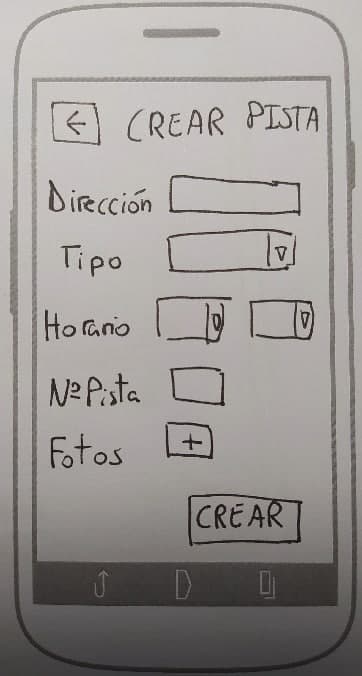 CREAR PISTA
Dirección
Tipo
Horario
Nº Pista
Fotos
CREAR